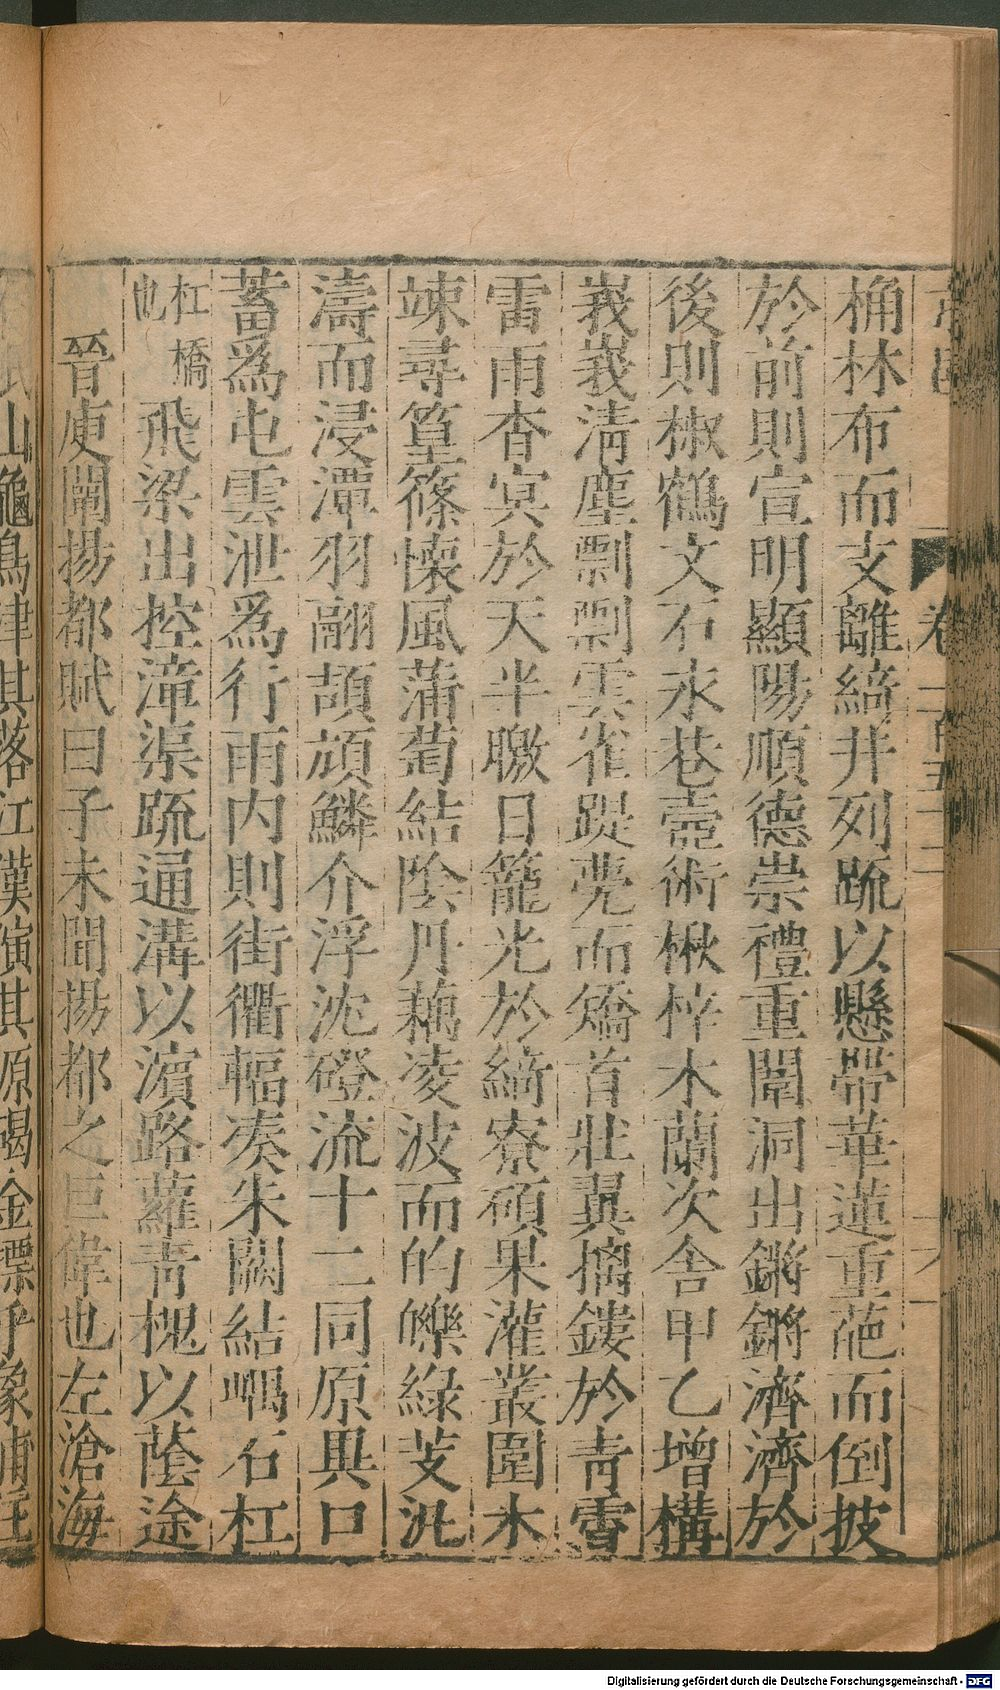 桷林布而支離綺井列䟽以懸帶華蓮重葩而倒披
於前則宣明顯陽順德崇禮重闈洞出鏘鏘濟濟於
後則椒鶴文石永巷壼術楸梓木蘭次舍甲乙增構
峩峩淸塵剽剽雲雀踶甍而矯首壯翼摛鏤於靑霄
雷雨杳㝠於天半曒日籠光於綺寮碩果灌叢圍木
竦尋篁篠懷風蒲萄結陰丹藕凌波而的皪綠芰汎
濤而浸潭羽翮頡頏鱗介浮沈磴流十二同原異口
蓄爲屯雲泄爲行雨内則街衢輻湊朱闕結嵎石杠
杠橋也飛梁出控漳渠䟽通溝以濵路蘿靑槐以蔭途
晉庾闡揚都賦曰子未聞揚都之巨偉也左滄海
山龜鳥津其落江漢演其原碣金
Digitalisierung gefördert durch die Deutsche Forschungsgemeinschaft - DFG